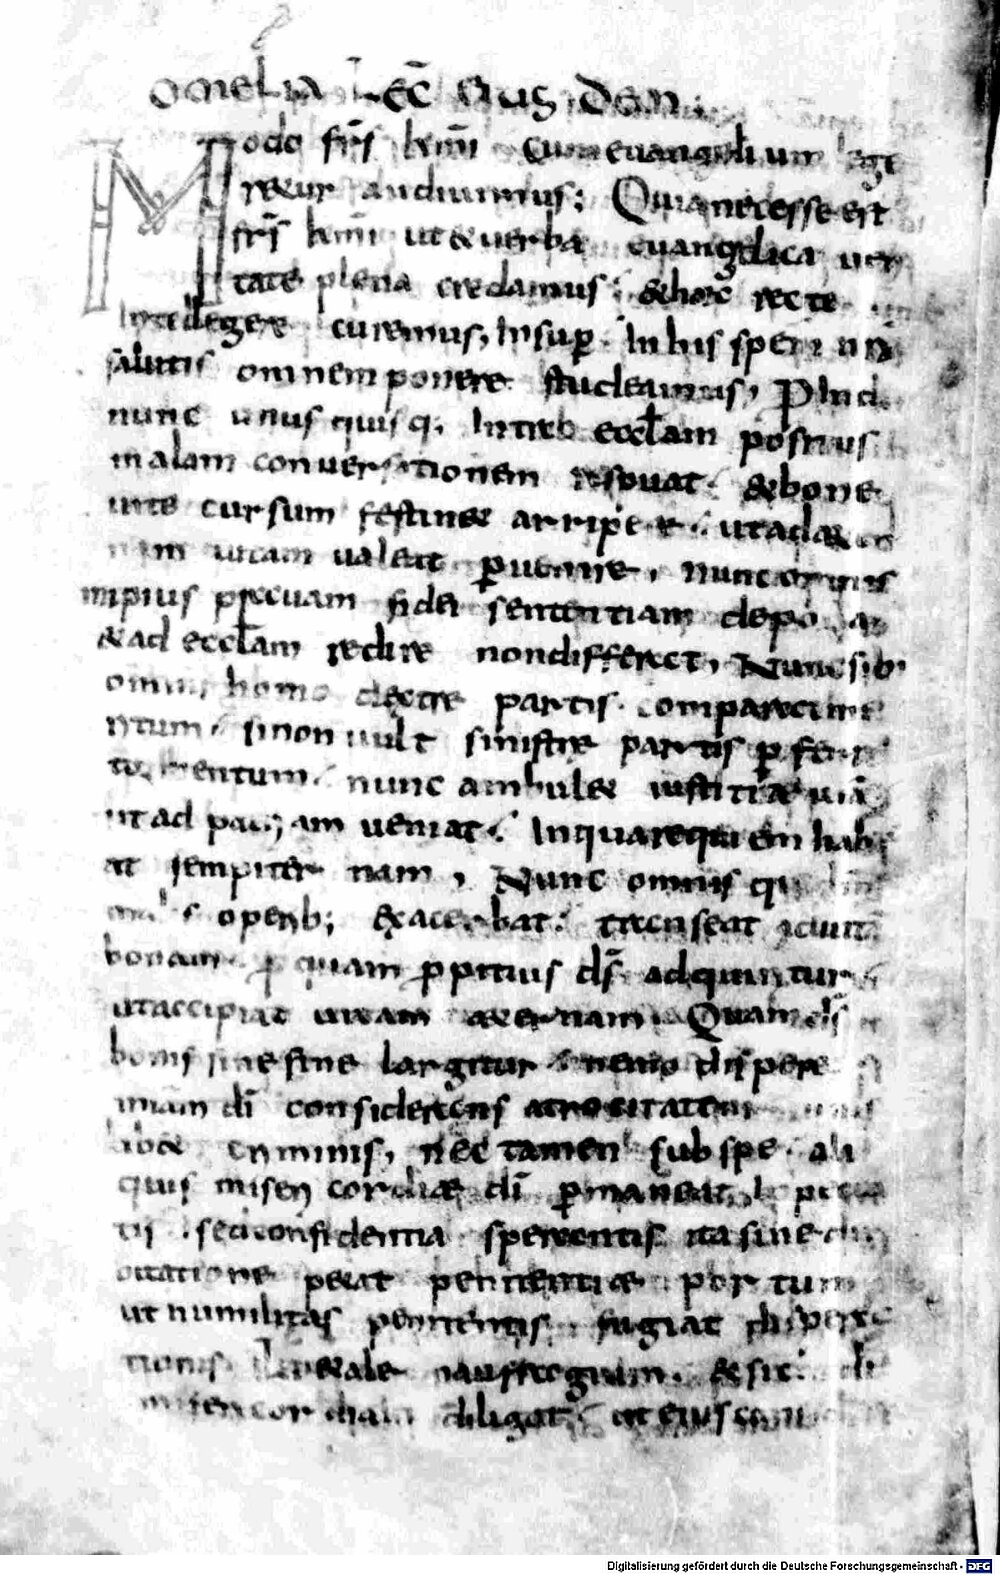 omelia lec eius dem
Modo frs kmi cum euangelium lege
retur audiuimus; Quia necesse est
frs kmi ut & uerba euangelica ueri
tate plena credamus; & hoc recte
Intellegere curemus, Insup In his spem nre
salutis omnem ponere studeamus, Proinde
nunc unus quisq; Intra ecclam positus
malam conuersationem respuat; & bone
uite cursum festinet arripere; ut ad &er
nam uitam ualeat puenire, nunc omnis
impius prauam fidei sententiam deponat
& ad ecclam redire non differat, Nunc sibi
omnis homo dextre partis comparet
si non uult sinistre partis pferre
tormentum; nunc ambulet iustitiae uiā
ut ad patriam ueniat; In qua requiem habe
at sempiternam, Nunc omnis qui dm
malis operib; exacerbat; transeat ad uitā
bonam p quam ppitius ds adquiritur
ut accipiat uitam aeternam Quam ds
bonis sine fine largitur; nemo disperet
uniam di considerans atrocitatem cuius
libet criminis, nec tamen sub spe ali
quis misericordiae di pmaneat In pecca
tis sed confidentia sperantis ita sine du
bitatione petat penitentiae portum
ut humilitas penitentis fugiat dispera
tionis letale naufragium; & sic di
misericordiam diligat; ut eius